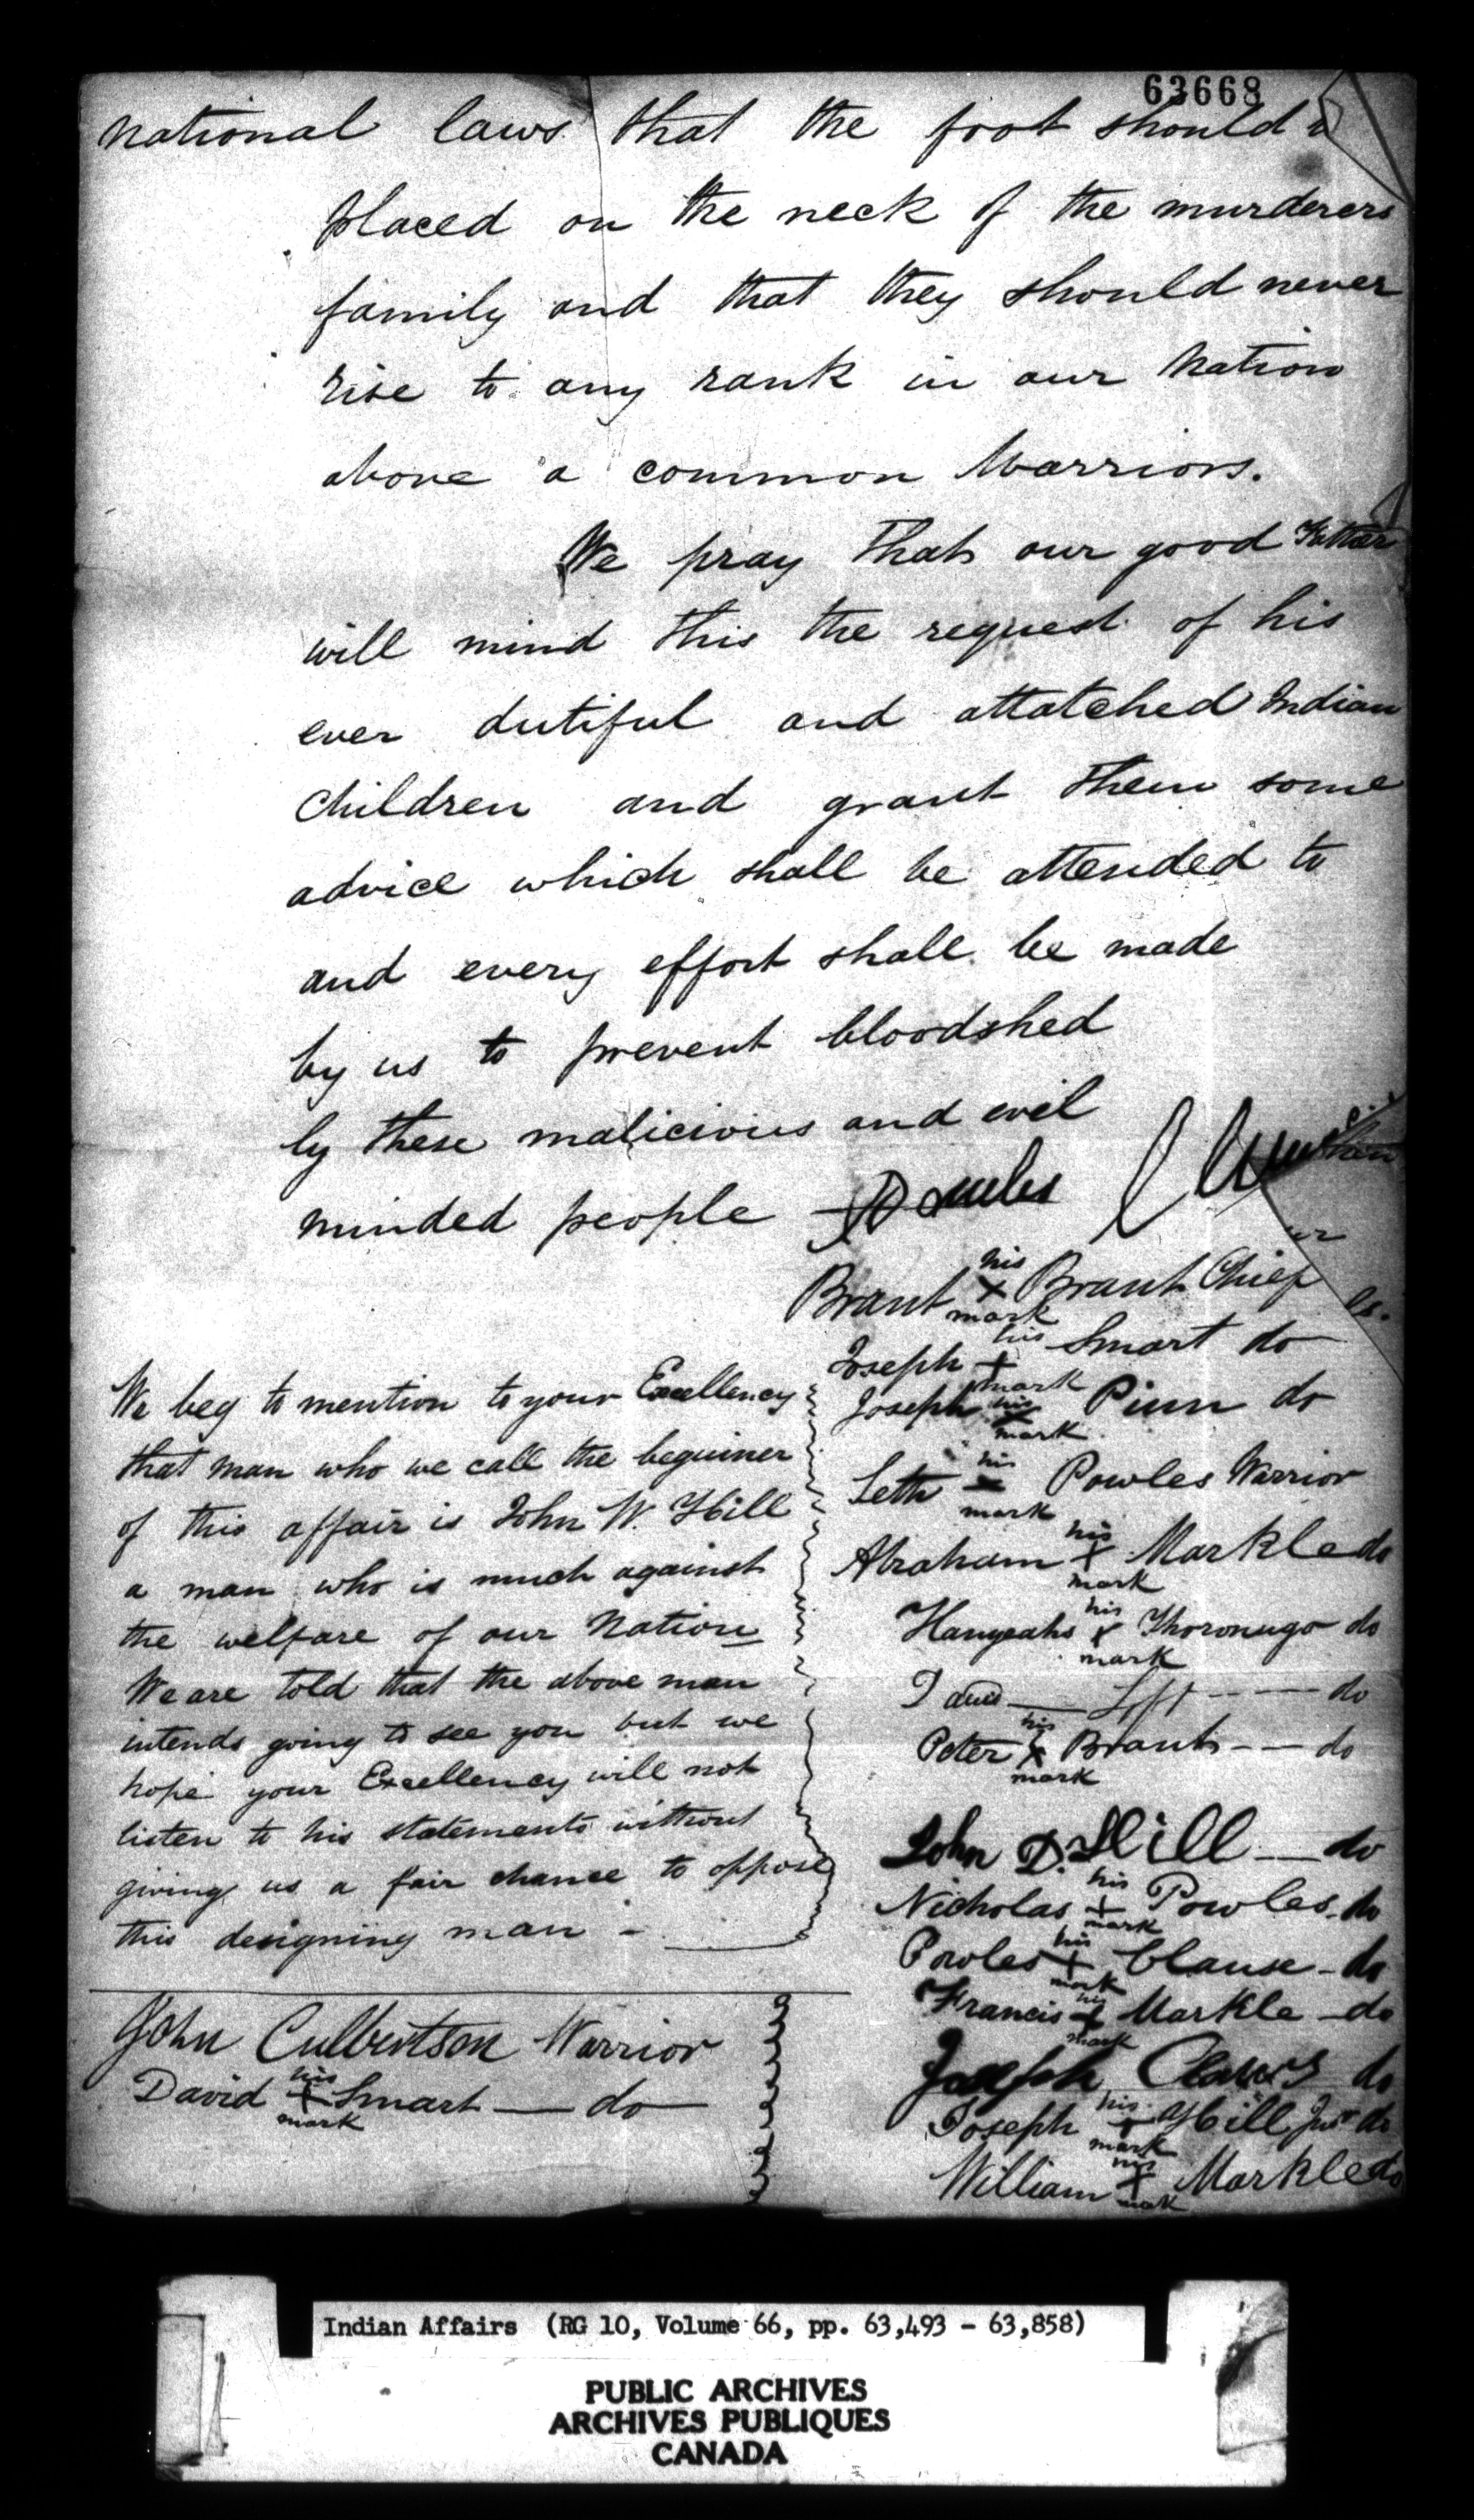 63668
national laws that the foot should
placed on the neck of the murderers
family and that they should never
rise to any rank in our Nation
above a common Warriors.
We pray that our good Father
will mind this the request of his
ever dutiful and attatched Indian
Children and grant them some
advice which shall be attended to
and every effort shall be made
by us to prevent bloodshed
by these malicious and evil
minded people
his
Brant X Brant Chief
mark
his
Joseph + Smart do
mark
his
Joseph X Pinn do
mark
his
Seth X Powles Warrior
mark
his
Abraham + Markle do
mark
his
X Thoronugo do
mark
do
his
Peter X Brant -- do
mark
John D. Hill — do
his
Nicholas + Powles do
mark
his
Powles + Clause - do
mark
his
Francis + Markle - do
mark
Joseph Claus do
his
Joseph + Hill Junr do
mark
his
William + Markle do
mark
We beg to mention to your Excellency
that man who we call the beguiner
of this affair is John W. Hill
a man who is much against
the welfare of our Nation
We are told that the above man
intends going to see you but we
hope your Excellency will not
listen to his statements without
giving us a fair chance to oppose
this designing man -
John Culbertson Warrior
his
David + Smart — do
mark
Indian Affairs (RG 10, Volume 66, pp. 63,493 - 63,858)
PUBLIC ARCHIVES
ARCHIVES PUBLIQUES
CANADA